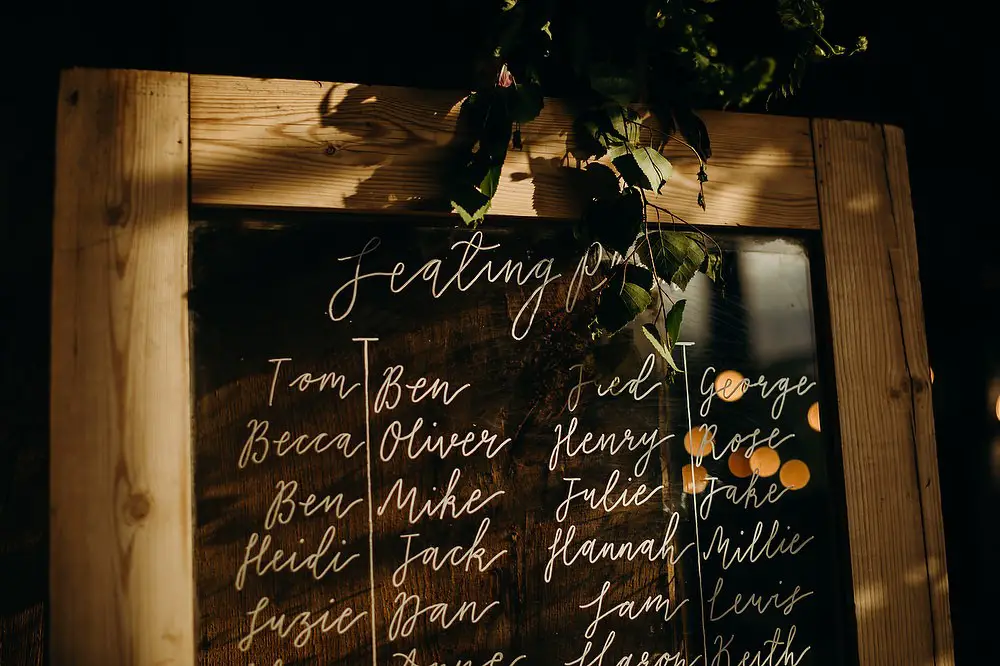 Seating P
Tom Ben Fred George
Becca Oliver Henry Rose
Ben Mike Julie Jake
Heidi Jack Hannah Millie
Suzie Dan Sam Lewis
Sharon Keith